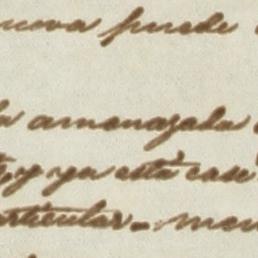 nueva puede
la amenazada
y ya está case
articular. men